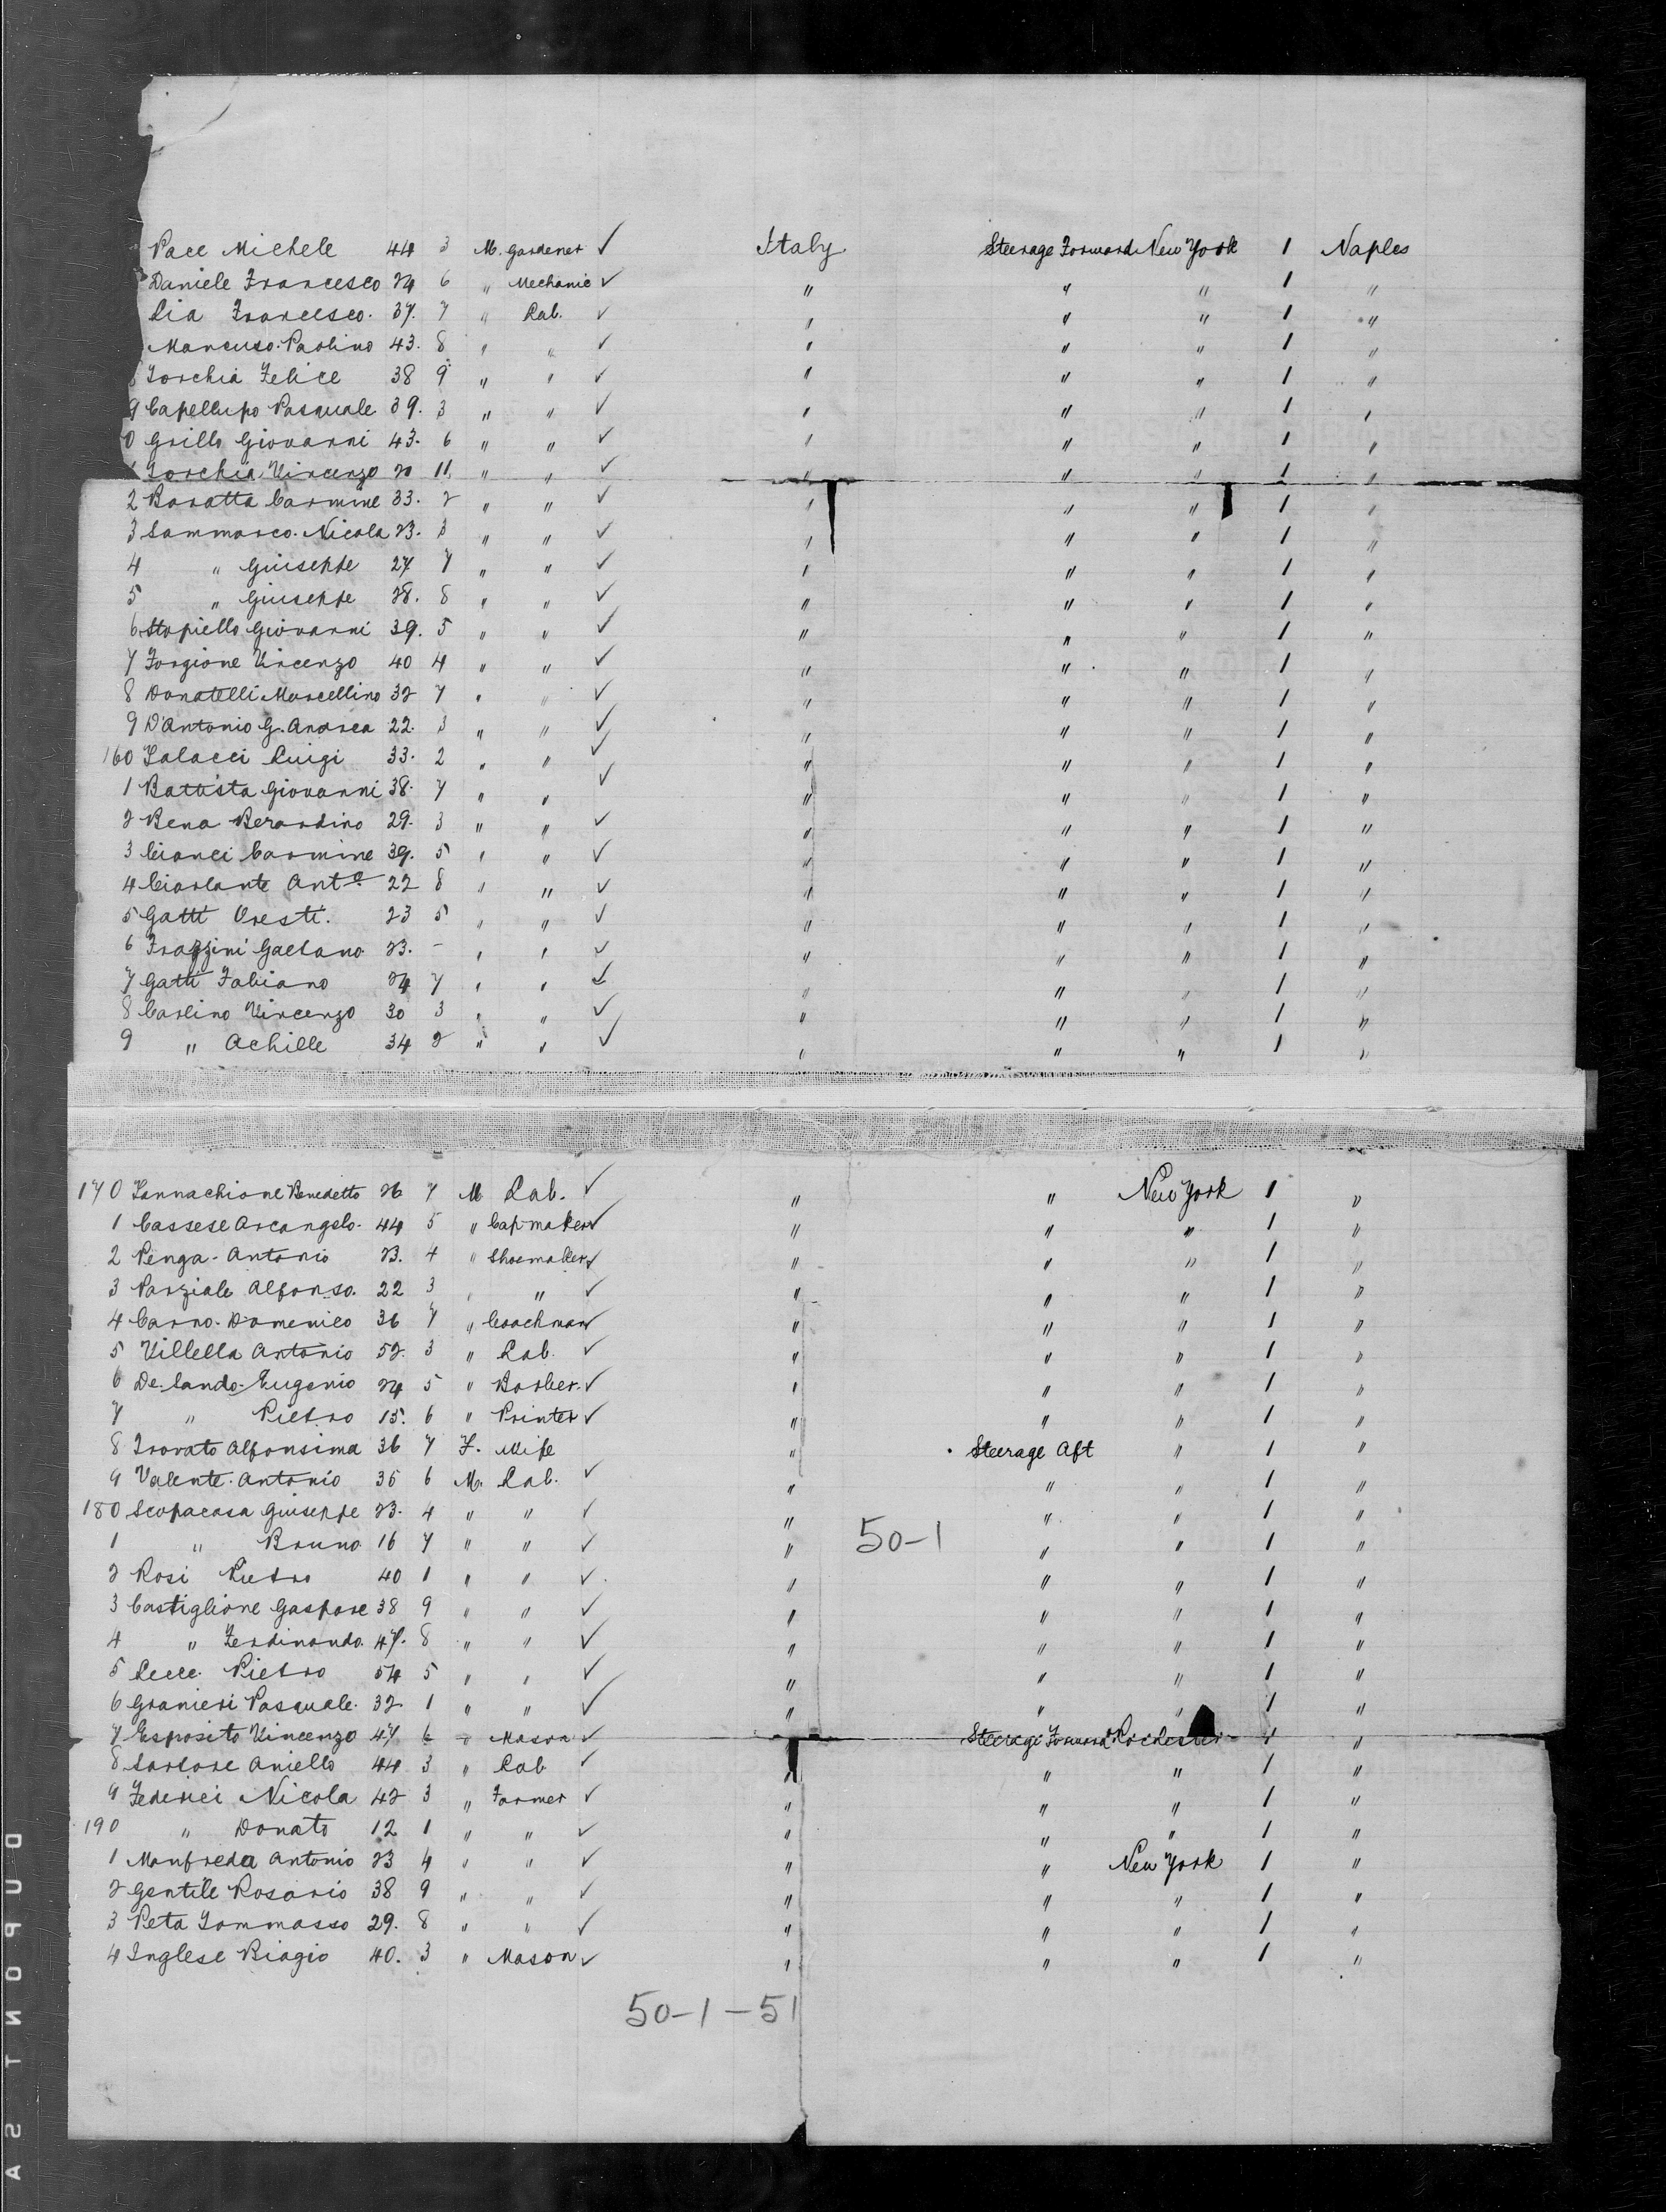 Pace Michele 44 3 M. Gardener ✓ Italy Steerage Forward New York 1 Naples
Daniele Francesco 24 6 " Mechanic ✓ " " " 1 "
Lia Francesco. 37. 7 " Lab. ✓ " " " 1 "
Mancuso. Paolino 43. 8 " " ✓ " " " 1 "
8 Torchia Felice 38 9 " " ✓ " " " 1 "
9 Capellupo Pasquale 39. 3 " " ✓ " " " 1 "
0 Grillo Giovanni 43. 6 " " ✓ " " " 1 "
1 Torchia Vincenzo 20 11 " " ✓ " " " 1 "
2 Baratta Carmine 33. 2 " " ✓ " " " 1 "
3 Sammarco. Nicola 23. 3 " " ✓ " " " 1 "
4 " Giuseppe 27 7 " " ✓ " " " 1 "
5 " Giuseppe 28. 8 " " ✓ " " " 1 "
6 Stopiello Giovanni 39. 5 " " ✓ " " " 1 "
7 Forgione Vincenzo 40 4 " " ✓ " " " 1 "
8 Donatelli Marcellino 32 7 " " ✓ " " " 1 "
9 D'Antonio G. Andrea 22. 3 " " ✓ " " " 1 "
160 Salacci Luigi 33. 2 " " ✓ " " " 1 "
1 Battista Giovanni 38. 7 " " ✓ " " " 1 "
2 Bena Berardino 29. 3 " " ✓ " " " 1 "
3 Cianci Carmine 39. 5 " " ✓ " " " 1 "
4 Ciarlante Anto 22 8 " " ✓ " " " 1 "
5 Gatti Oresti. 23 5 " " ✓ " " " 1 "
6 Frazzini Gaetano 23. - " " ✓ " " " 1 "
7 Gatti Fabiano 24 7 " " ✓ " " " 1 "
8 Carlino Vincenzo 30 3 " " ✓ " " " 1 "
9 " Achille 34 2 " " ✓ " " " 1 "
170 Iannachione Benedetto 26 7 M Lab. ✓ " " New York 1 "
1 Cassese Arcangelo. 44 5 " Capmaker ✓ " " " 1 "
2 Penga. Antonio 23. 4 " Shoemaker ✓ " " " 1 "
3 Parziale Alfonso. 22 3 " " ✓ " " " 1 "
4 Carno. Domenico 36 7 " Coachman ✓ " " " 1 "
5 Villella Antonio 52. 3 " Lab. ✓ " " " 1 "
6 De-Lando-Eugenio 24 5 " Barber. ✓ " " " 1 "
7 " Pietro 15. 6 " Printer ✓ " " " 1 "
8 Trovato Alfonsima 36 7 F. Wife " Steerage Aft " 1 "
9 Valente. Antonio 35 6 M. Lab. ✓ " " " 1 "
180 Scopacasa Giuseppe 23. 4 " " ✓ " " " 1 "
1 " Bruno 16 7 " " ✓ " 50-1 " " 1 "
2 Rosi Pietro 40 1 " " ✓ " " " 1 "
3 Castiglione Gaspare 38 9 " " ✓ " " " 1 "
4 " Ferdinando. 47. 8 " " ✓ " " " 1 "
5 Lecce. Pietro 54 5 " " ✓ " " " 1 "
6 Granieri Pasquale. 32 1 " " ✓ " " " 1 "
7 Esposito Vincenzo 47 6 " Mason ✓ Steerage Forward Rochester 1 "
8 Sartore Aniello 44 3 " Lab ✓ " " " 1 "
9 Federici Nicola 42 3 " Farmer ✓ " " " 1 "
190 " Donato 12 1 " " ✓ " " " 1 "
1 Manfreda Antonio 23 4 " " ✓ " " New York 1 "
2 Gentile Rosario 38 9 " " ✓ " " " 1 "
3 Peta Tommasso 29. 8 " " ✓ " " " 1 "
4 Inglese Biagio 40. 3 " Mason ✓ " " " 1 "
50-1-51
DUPONT SA